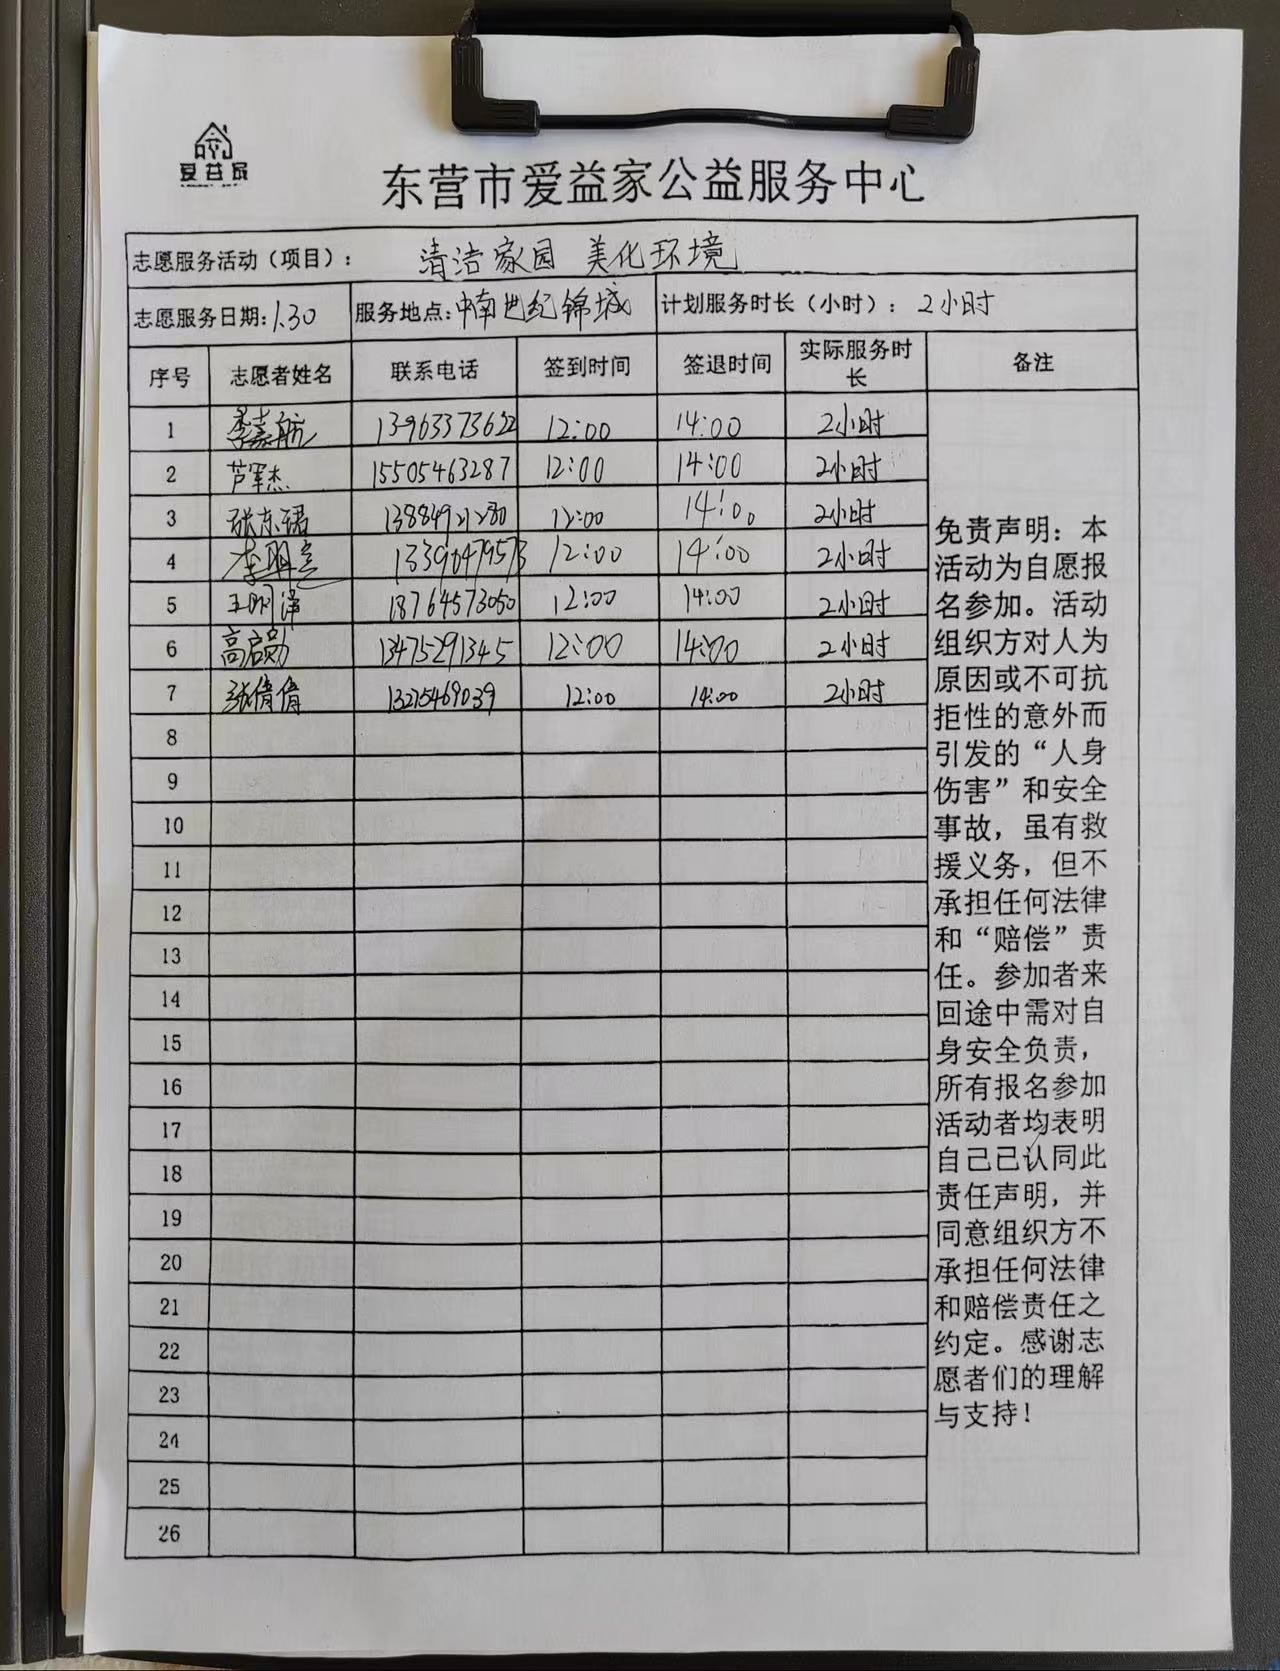 爱益家
东营市爱益家公益服务中心
志愿服务活动（项目）： 清洁家园 美化环境
志愿服务日期：1.30 服务地点：中南世纪锦城 计划服务时长（小时）：2小时
序号 志愿者姓名 联系电话 签到时间 签退时间 实际服务时长 备注
1 李嘉航 13963373622 12:00 14:00 2小时
2 芦军杰 15505463287 12:00 14:00 2小时
3 张东珺 13884921280 12:00 14:00 2小时
4 12:00 14:00 2小时
5 王明泽 18764573050 12:00 14:00 2小时
6 高启勋 13475291345 12:00 14:00 2小时
7 张倩倩 13215469039 12:00 14:00 2小时
8
9
10
11
12
13
14
15
16
17
18
19
20
21
22
23
24
25
26
免责声明：本
活动为自愿报
名参加。活动
组织方对人为
原因或不可抗
拒性的意外而
引发的“人身
伤害”和安全
事故，虽有救
援义务，但不
承担任何法律
和“赔偿”责
任。参加者来
回途中需对自
身安全负责，
所有报名参加
活动者均表明
自己已认同此
责任声明，并
同意组织方不
承担任何法律
和赔偿责任之
约定。感谢志
愿者们的理解
与支持！